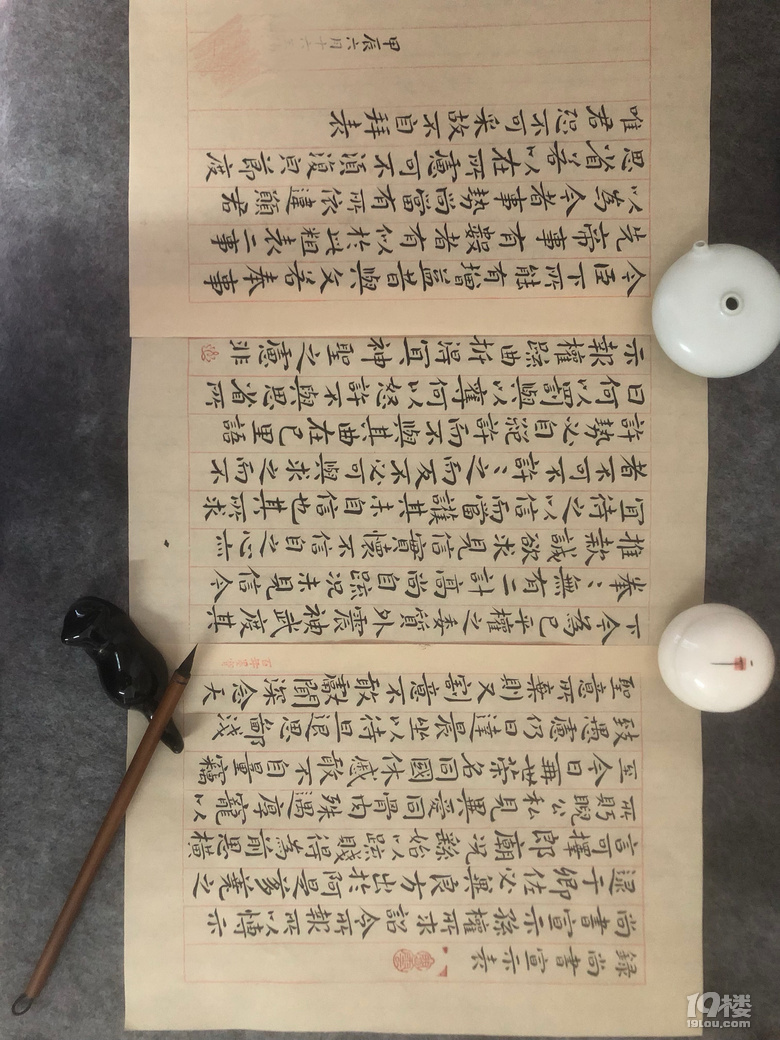 錄尚書宣示表
尚書宣示孫權所求詔令所報所以博示
逮于卿佐必異良方出於阿是芻蕘之
言可擇郎廟況繇始以疏賤得為前恩橫
所眄公私見異愛同骨肉殊遇厚寵以
至今日再世榮名同國休慼敢不自量竊
致愚慮仍日達晨坐以待旦退思鄙淺
聖意所棄則又割意不敢獻聞深念天
下今為已平權之委質外震神武度其
拳〻無有二計高尚自疏況未見信今
推款誠欲求見信實懷不自信之心亦
宜待之以信而當護其未自信也其所求
者不可不許〻之而反不必可與求之而不
許勢必自絕許而不與其曲在己里語
曰何以罰與以奪何以怒許不與思省所
示報權疏曲折得宜神聖之慮非
今臣下所能有增益昔與文若奉事
先帝事有數者有似於此粗表二事
以為今者事勢尚當有所依違願君
思省若以在所慮可不須復貞節度
唯君恐不可采故不自拜表
甲辰六月十
19楼
19lou.com